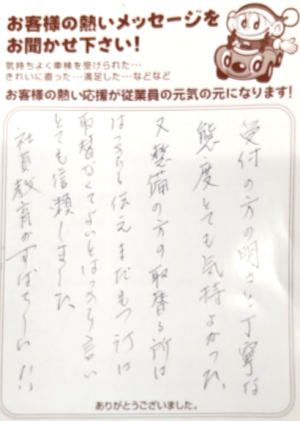 お客様の熱いメッセージを
お聞かせ下さい!
気持ちよく車検を受けられた…
きれいに直った…満足した…などなど
お客様の熱い応援が従業員の元気の元になります!
受付の方の明るさと丁寧な
態度とても気持よかった。
又整備の方の取替る所は
はっきり伝えまだもつ所は
取替なくてよいとはっきり言い
とても信頼しました。
社員教育がすばらしい!!
ありがとうございました。